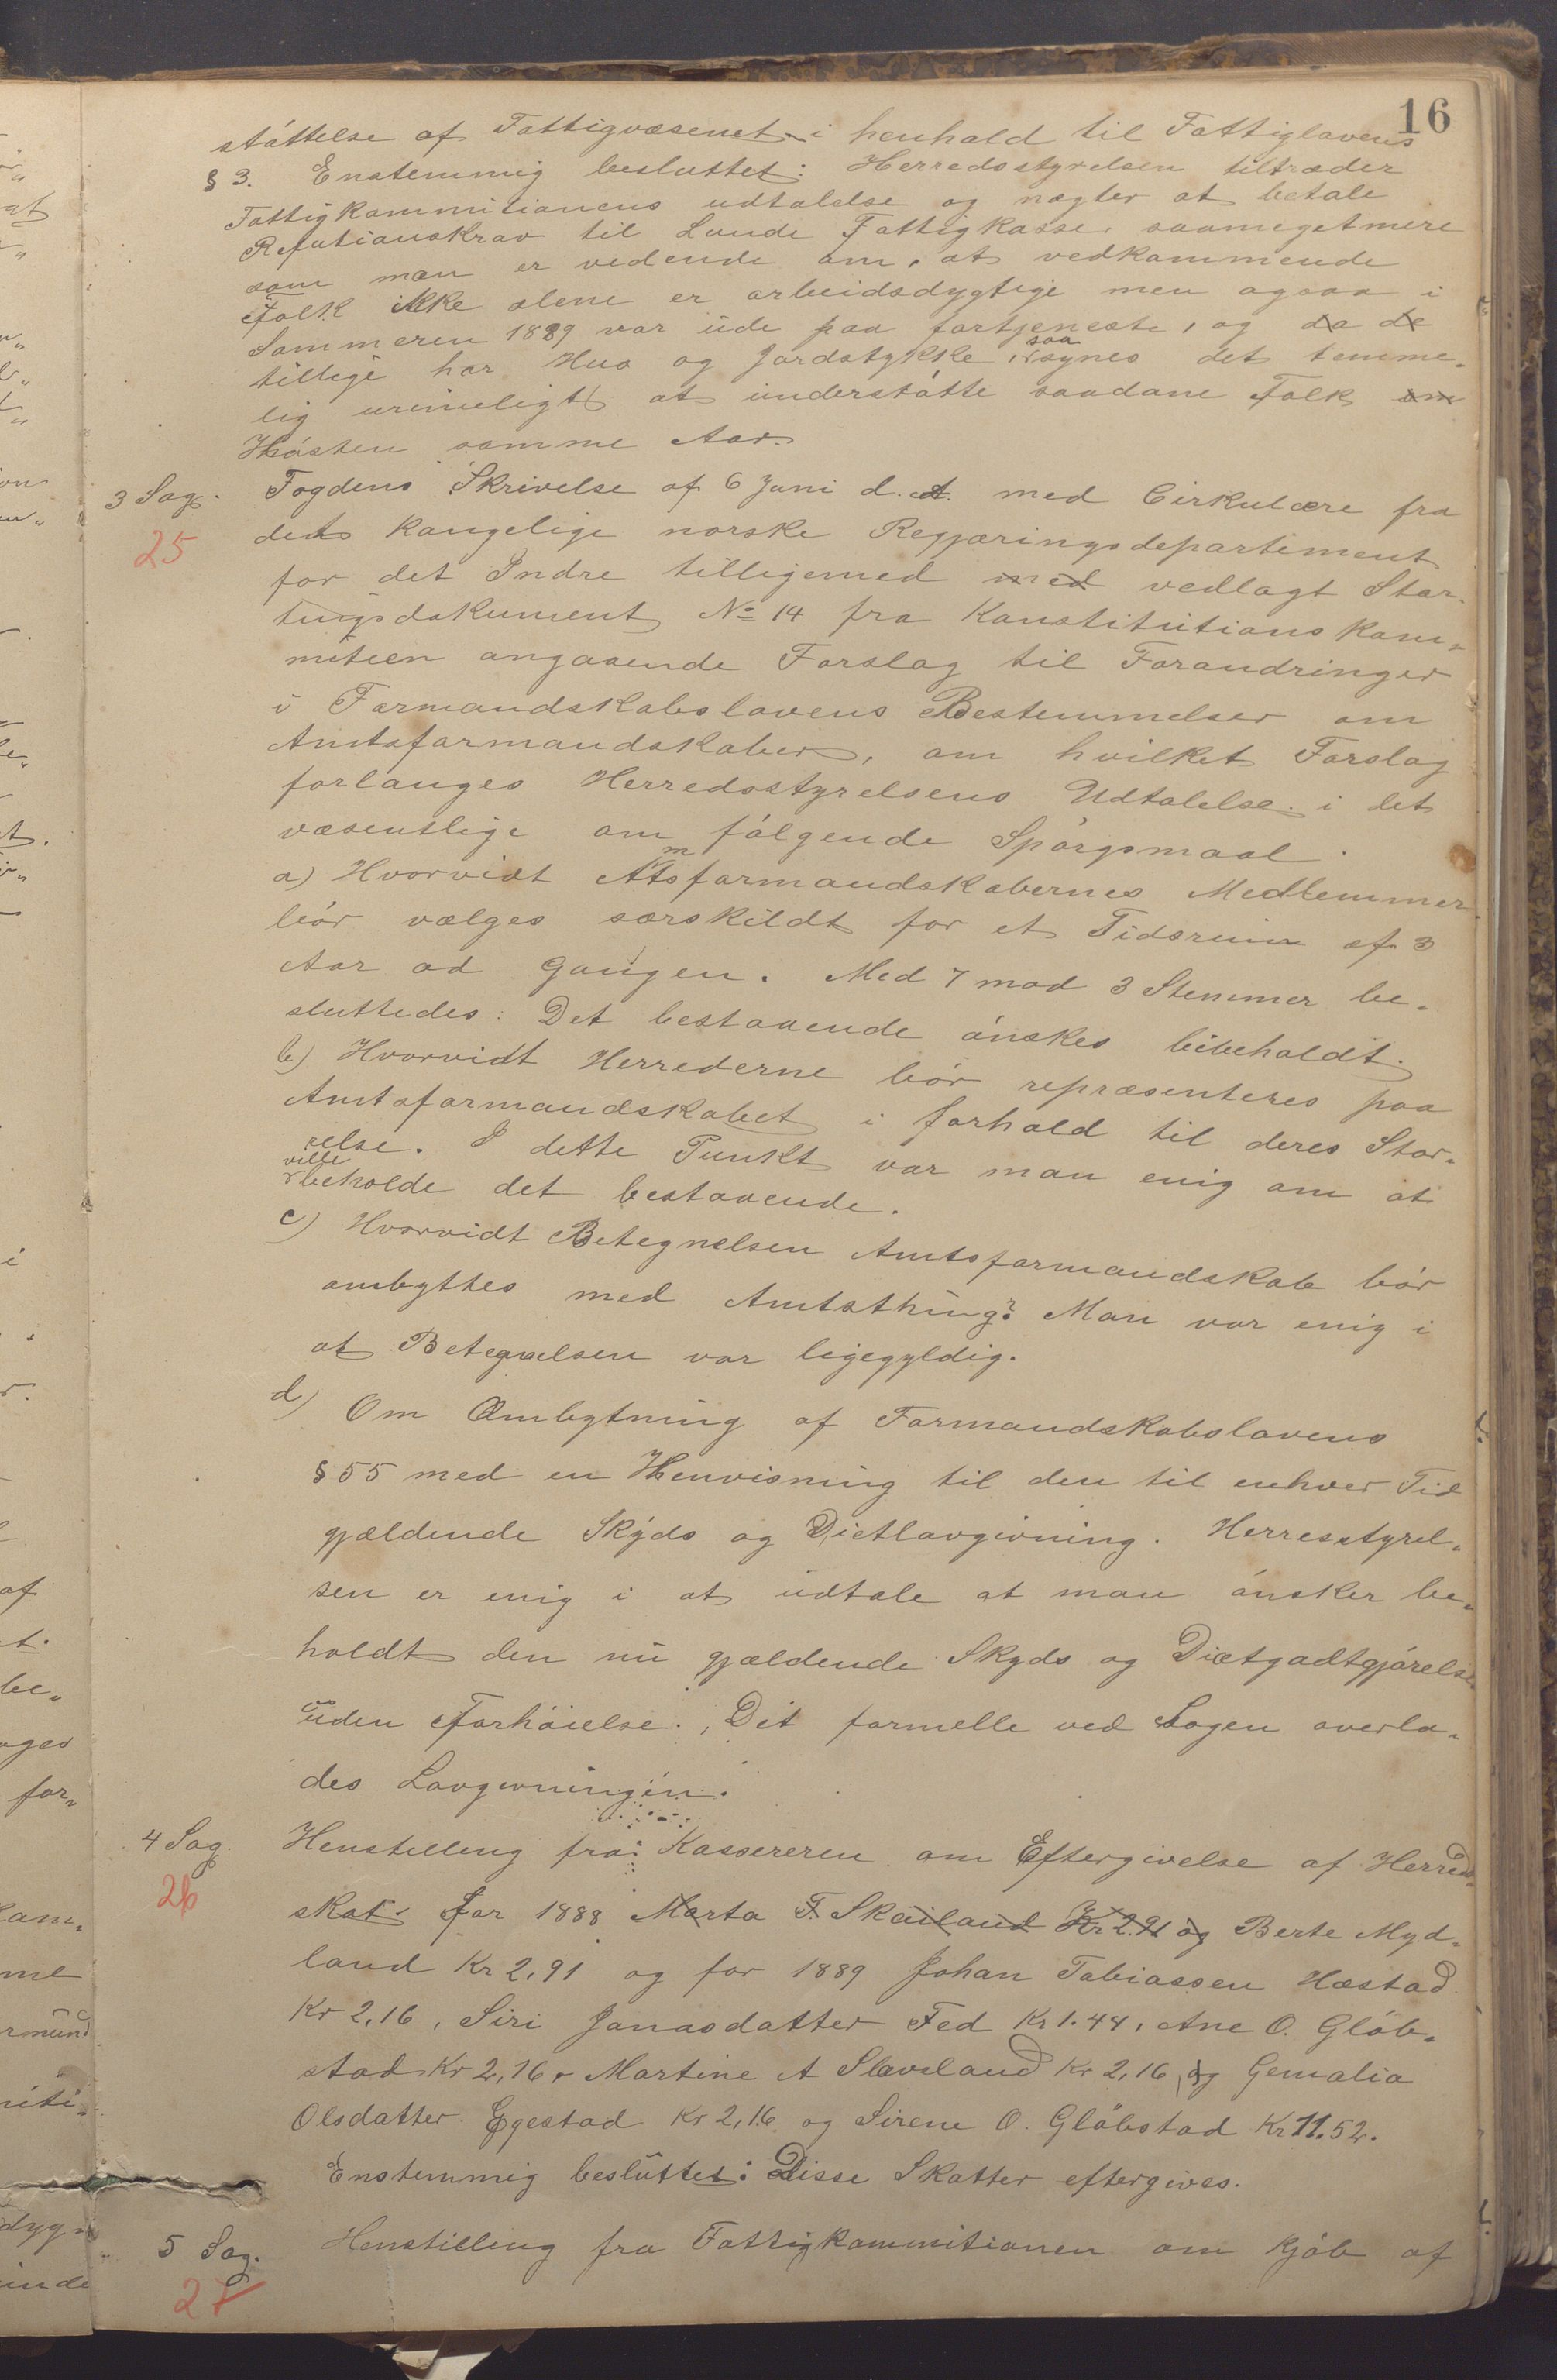 16
støttelse af Fattigvæsenet i henhold til Fattiglovens
§ 3. Enstemmig besluttet: Herredsstyrelsen tiltræder
Fattigkommitionens udtalelse og nægter at betale
Refutionskrav til Lunde Fattigkasse, saameget mere
som man er vedende om, at vedkommende
Folk ikke alene er arbeidsdygtige men ogsaa i
Sommeren 1889 var ude paa fortjeneste, og da de
tillige har Hus og Jordstykke, saa synes det temme-
lig urimeligt at understøtte saadane Folk om
Høsten samme Aar.
3 Sag. Fogdens Skrivelse af 6 Juni d. A. med Cirkulære fra
25 det kongelige norske Regjæringsdepartiment
for det Indre tilligemed med vedlagt Stor-
tingsdokument No 14 fra Konstitutionskom-
miteen angaaende Forslag til Forandringer
i Formandskabslovens Bestemmelser om
Amtsformandskaber, om hvilket Forslag
forlanges Herredsstyrelsens Udtalelse i det
væsentlige om følgende Spørgsmaal.
a) Hvorvidt Amtsformandskabernes Medlemmer
bør vælges særskildt for et Tidsrum af 3
Aar ad Gangen. Med 7 mod 3 Stemmer be-
sluttedes: Det bestaaende ønskes bibeholdt.
b) Hvorvidt Herrederne bør repræsenteres paa
Amtsformandskabet i forhold til deres Stør-
relse. I dette Punkt var man enig om at
ville beholde det bestaaende.
c) Hvorvidt Betegnelsen Amtsformandskab bør
ombyttes med Amtsthing? Man var enig i
at Betegnelsen var ligegyldig.
d) Om Ombytning af Formandskabslovens
§ 55 med en Henvisning til den til enhver Tid
gjældende Skyds og Dietlovgivning. Herresstyrel-
sen er enig i at udtale at man ønsker be-
holdt den nu gjældende Skyds og Dietgodtgjørelse
uden Forhøielse. Det formelle ved Sagen overla-
des Lovgivningen.
4 Sag. Henstilleng fra Kassereren om Eftergivelse af Herreds-
26 skat for 1888 Marta T. Skailand Kr 2.91 og Berte Myd-
land Kr 2,91 og for 1889 Johan Tobiassen Hæstad
Kr 2,16, Siri Jonasdatter Fed Kr 1.44, Ane O. Gløb-
stad Kr 2,16, Martine A Sleveland Kr 2,16, og Gemalia
Olsdatter Egestad Kr 2,16 og Sirene O. Gløbstad Kr 11.52.
Enstemmig besluttet: Disse Skatter eftergives.
5 Sag. Henstilleng fra Fattigkommitionen om Kjøb af
27